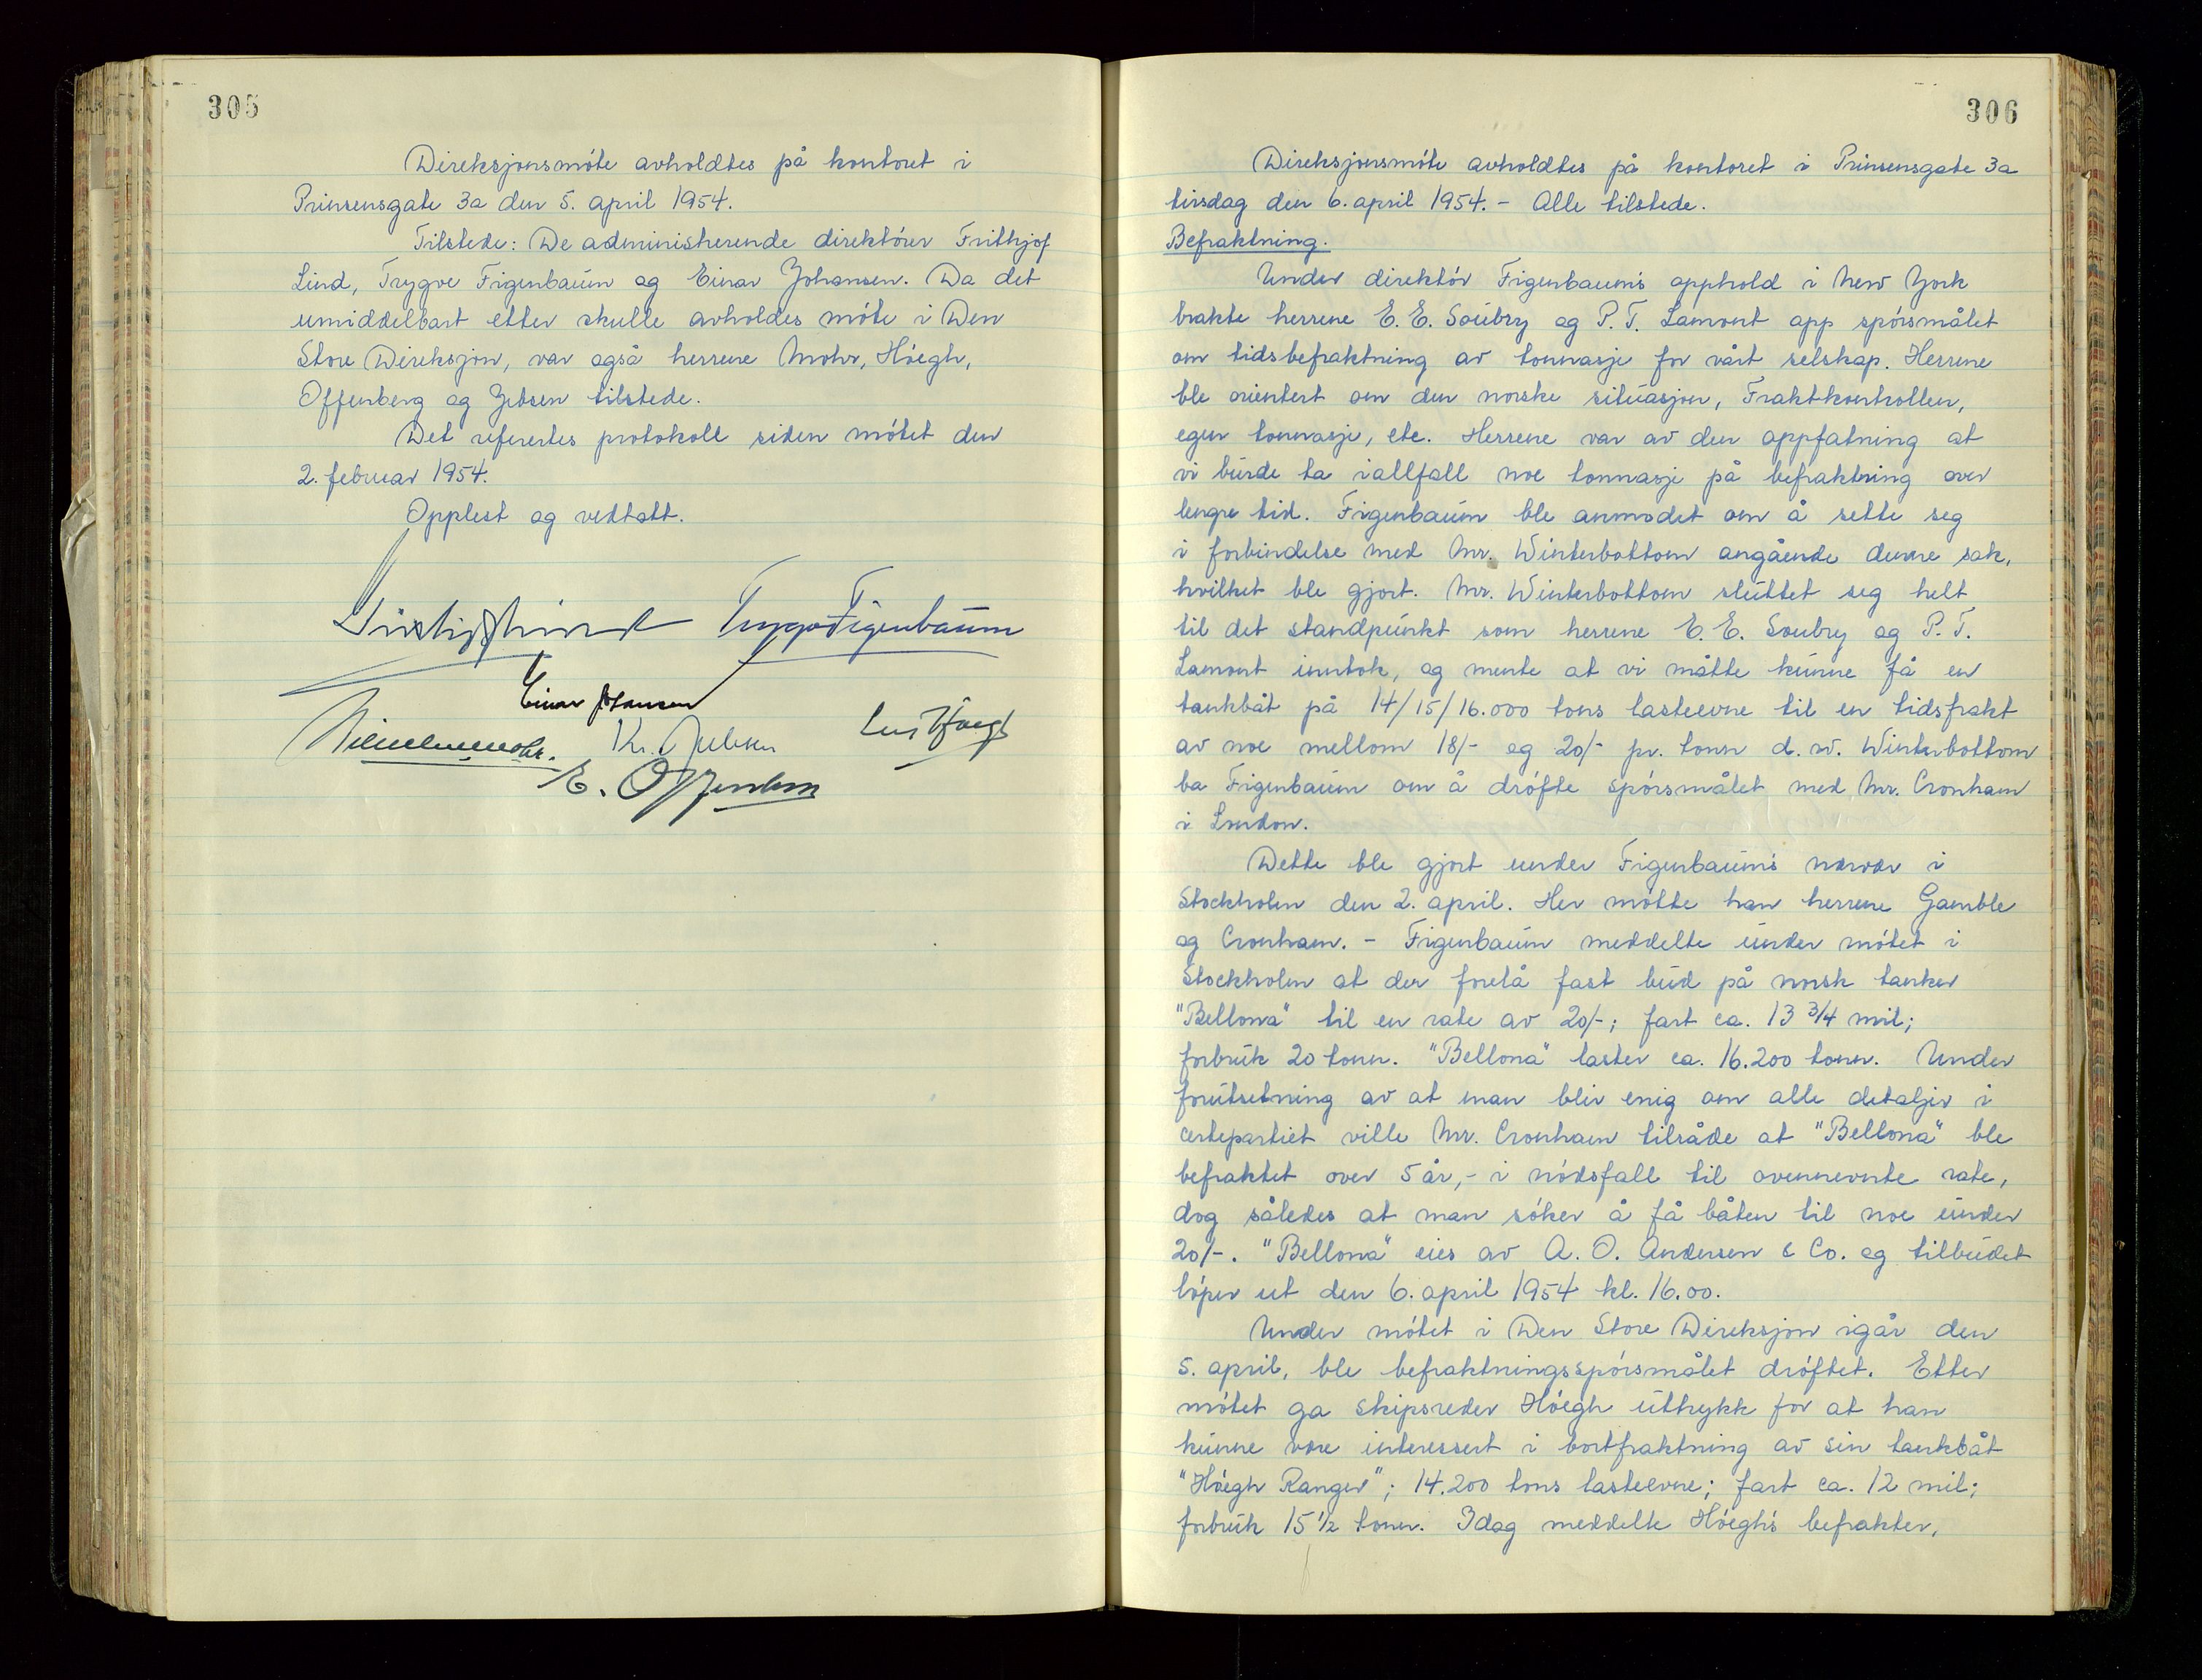 305
Direksjonsmöte avholdtes på kontoret i
Prinsensgate 3a den 5. april 1954.
Tilstede: De administrerende direktörer Frithjof
Lind, Trygve Figenbaum og Einar Johansen. Da det
umiddelbart etter skulle avholdes möte i Den
Store Direksjon, var også herrene Mohr, Höegh,
Offenberg og Jebsen tilstede.
Det refertes protokoll siden mötet den
2. februar 1954.
Opplest og vedtatt.
Frithjof Lind Trygve Figenbaum
Einar Johansen
Wilhelm Mohr. Kr. Jebsen Leif Höegh
E. Offenberg
306
Direksjonsmöte avholdtes på kontoret i Prinsensgate 3a
tirsdag den 6. april 1954. - Alle tilstede.
Befraktning.
Under direktör Figenbaum's opphold i New York
brakte herrene E. E. Soubry og P. T. Lamont opp spörsmålet
om tidsbefraktning av tonnasje for vårt selskap. Herrene
ble orientert om den norske situasjon, Fraktkontrollen,
egen tonnasje, etc. Herrene var av den oppfatning at
vi burde ta iallfall noe tonnasje på befraktning over
lengre tid. Figenbaum ble anmodet om å sette seg
i forbindelse med Mr. Winterbottom angående denne sak,
hvilket ble gjort. Mr. Winterbottom sluttet seg helt
til det standpunkt som herrene E. E. Soubry og P. T.
Lamont inntok, og mente at vi måtte kunne få en
tankbåt på 14/15/16.000 tons lasteevne til en tidsfrakt
av noe mellom 18/- og 20/- pr. tonn d.w. Winterbottom
ba Figenbaum om å dröfte spörsmålet med Mr. Cronham
i London.
Dette ble gjort under Figenbaum's nærvær i
Stockholm den 2. april. Her mötte han herrene Gamble
og Cronham. - Figenbaum meddelte under mötet i
Stockholm at der forelå fast bud på norsk tanker
"Bellona" til en rate av 20/-; fart ca. 13 3/4 mil;
forbruk 20 tonn. "Bellona" laster ca. 16.200 tonn. Under
forutsetning av at man blir enig om alle detaljer i
certepartiet ville Mr. Cronham tilråde at "Bellona" ble
befraktet over 5 år, - i nödsfall til ovennevnte rate,
dog således at man söker å få båten til noe under
20/-. "Bellona" eies av A. O. Andersen & Co. og tilbudet
löper ut den 6. april 1954 kl. 16.00.
Under mötet i Den Store Direksjon igår den
5. april, ble befraktningsspörsmålet dröftet. Etter
mötet ga skipsreder Höegh uttrykk for at han
kunne være interessert i bortfraktning av sin tankbåt
"Höegh Ranger"; 14.200 tons lasteevne; fart ca. 12 mil;
forbruk 15 1/2 tonn. Idag meddelte Höegh's befrakter,